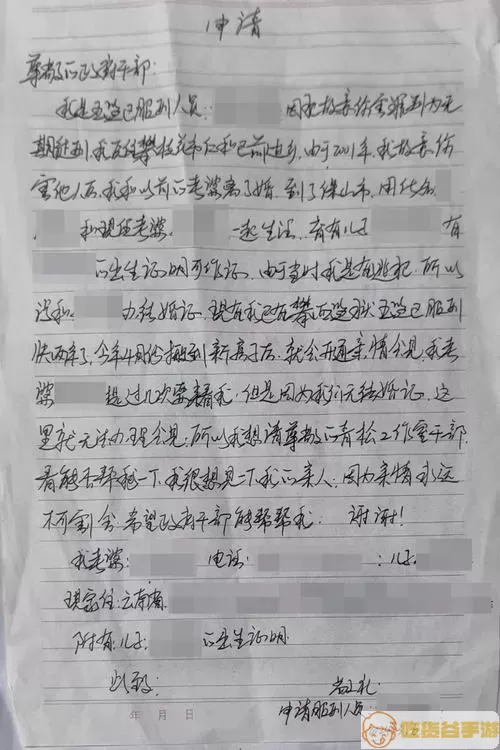 申请
尊敬的政府干部:
我是五监区服刑人员: 因犯故意伤害罪判为无
期徒刑,我原住攀枝花市仁和区前进乡,由于2001年,我故意伤
害他人后,我和以前的老婆离了婚,到了保山市,用化名
和现任老婆 一起生活,育有儿子 有
的出生证明可作证,由于当时我是在逃犯,所以
没和 办结婚证,现在我已在攀西监狱五监区服刑
快两年了,今年4月份搬到新房子后,就会开通亲情会见,我老
婆 提过几次要来看我,但是因为我们无结婚证,这
里就无法办理会见,所以我想请尊敬的青松工作室干部
看能否帮我一下,我很想见一下我的亲人,因为亲情永远
不可割舍,希望政府干部能帮帮我: 谢谢!
我老婆: 电话: :儿子
现家住:云南省
附有:儿子 的出生证明
此致: 敬礼
年 月 日 申请服刑人员:
吃货谷手游